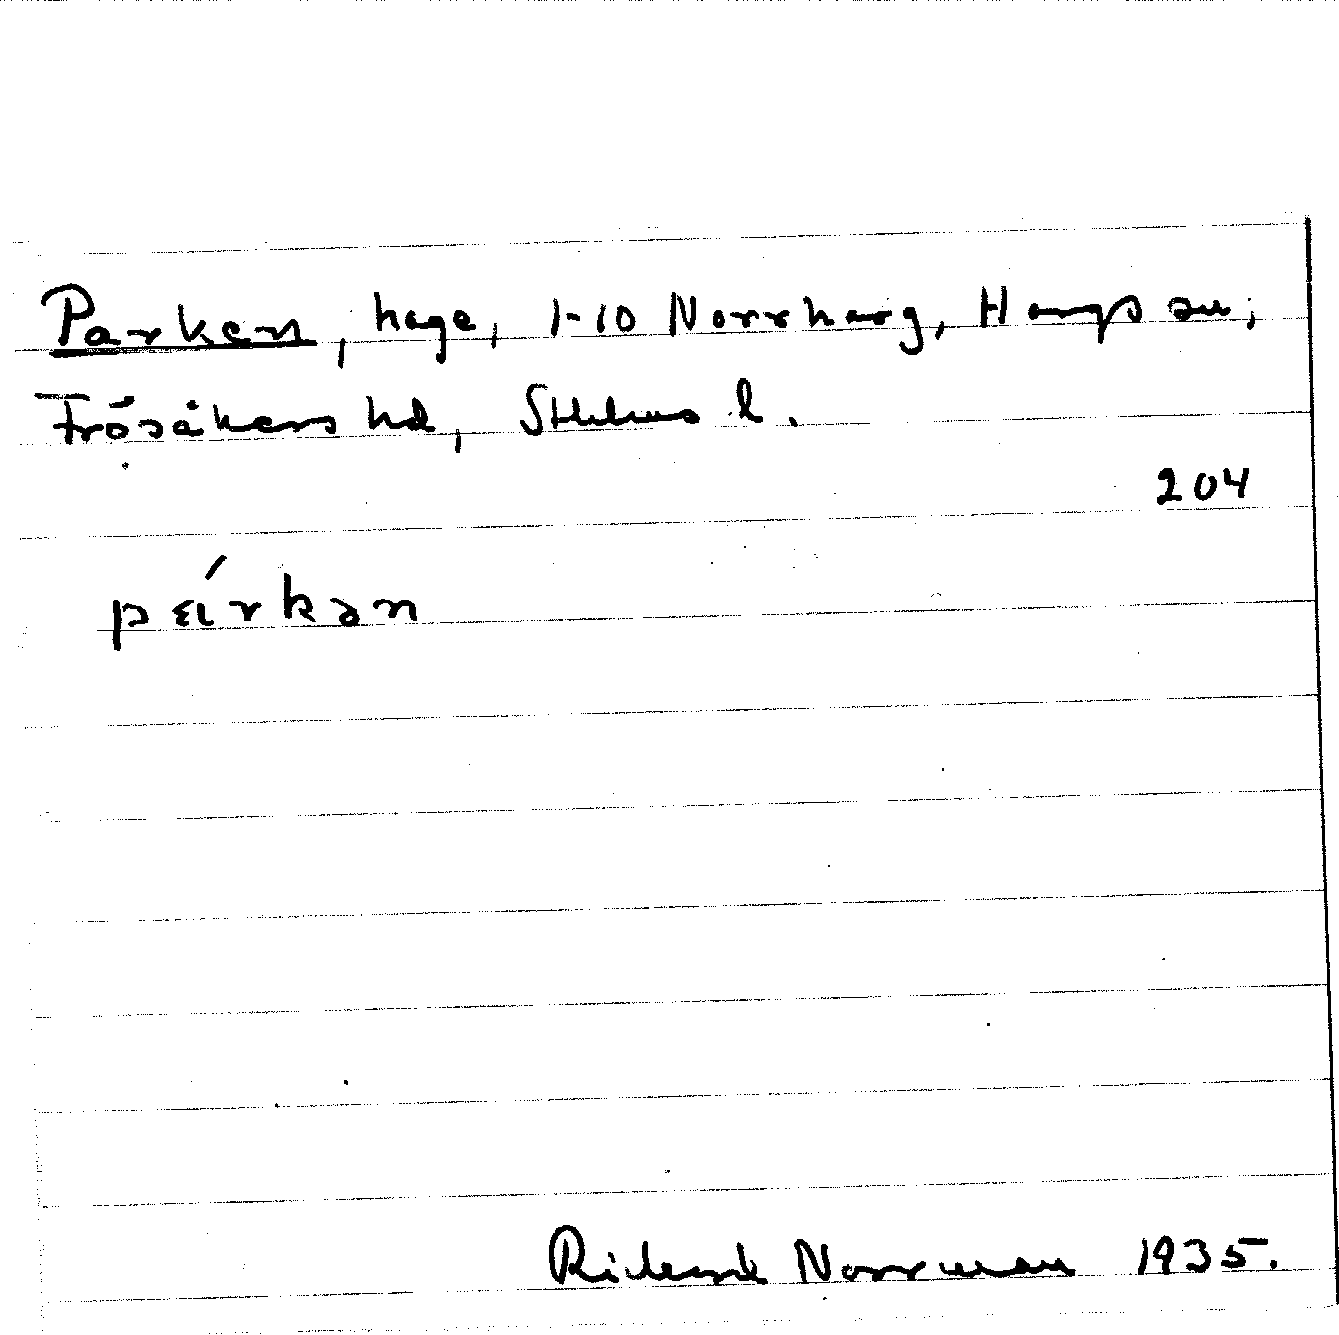 Parken, hage, 1-10 Norrharg, Hargs sn;
Frösåkers hd, Sthlms l.
204
párkən
Rickard Norrman 1935.